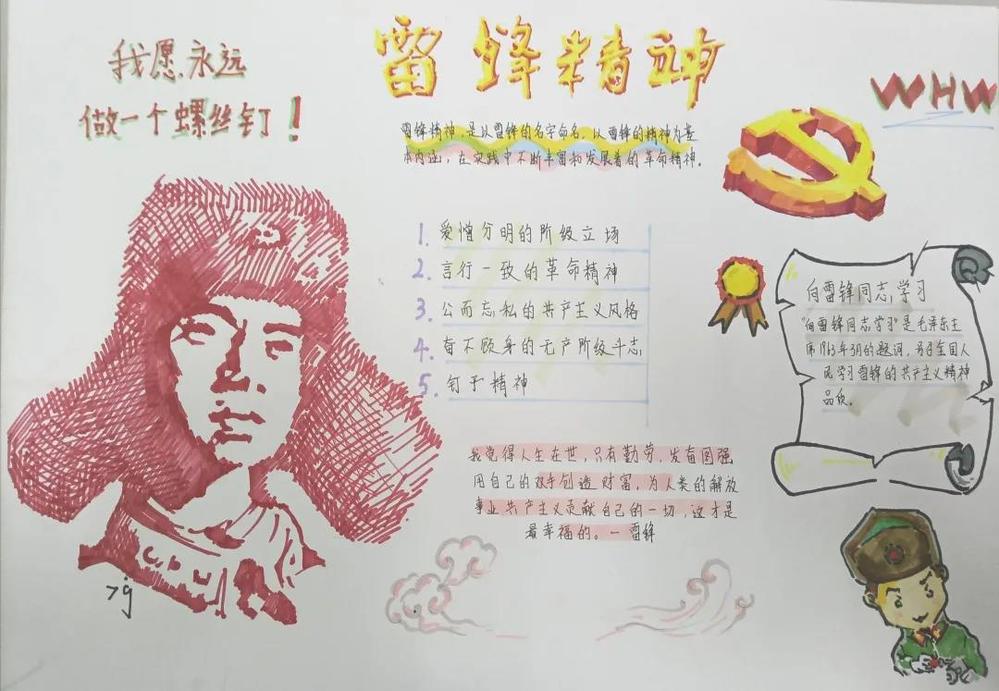 我愿永远
做一个螺丝钉！
雷锋精神
WHW
雷锋精神，是以雷锋的名字命名，以雷锋的精神为基
本内涵，在实践中不断丰富和发展着的革命精神。
1. 爱憎分明的阶级立场
2. 言行一致的革命精神
3. 公而忘私的共产主义风格
4. 奋不顾身的无产阶级斗志
5. 钉子精神
向雷锋同志学习
“向雷锋同志学习”是毛泽东主
席1963年3月的题词，号召全国人
民学习雷锋的共产主义精神
品质。
我觉得人生在世，只有勤劳，发奋图强
用自己的双手创造财富，为人类的解放
事业共产主义贡献自己的一切，这才是
最幸福的。—雷锋